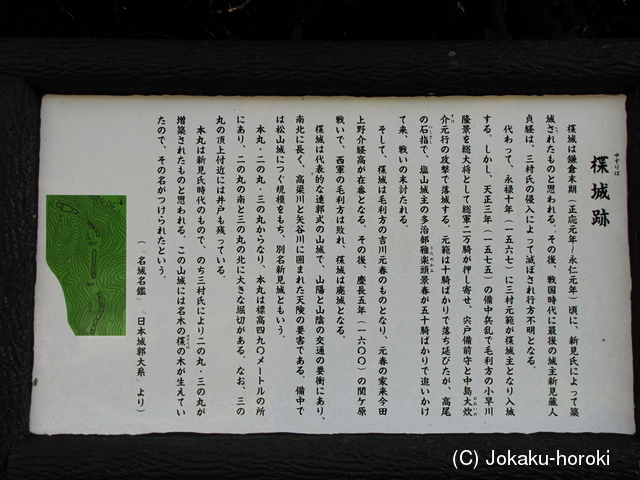 楪城跡
ゆずりは
楪城は鎌倉末期(正応元年~永仁元年)頃に、新見氏によって築
城されたものと思われる。その後、戦国時代に最後の城主新見蔵人
貞経は、三村氏の侵入によって滅ぼされ行方不明となる。
代わって、永禄十年(一五六七)に三村元範が楪城主となり入城
する。しかし、天正三年(一五七五)の備中兵乱で毛利方の小早川
隆景を総大将として総軍二万騎が押し寄せ、宍戸備前守と中島大炊
介元行の攻撃で落城する。元範は十騎ばかりで落ち延びたが、高尾
の石指で、塩山城主の多治部雅楽頭景春が五十騎ばかりで追いかけ
て来、戦いの末討たれる。
そして、楪城は毛利方の吉川元春のものとなり、元春の家来今田
上野介経高が在番となる。その後、慶長五年(一六〇〇)の関ケ原
戦いで、西軍の毛利方は敗れ、楪城は廃城となる。
楪城は代表的な連郭式の山城で、山陽と山陰の交通の要衝にあり、
南北に長く、高梁川と矢谷川に囲まれた天険の要害である。備中で
は松山城につぐ規模をもち、別名新見城ともいう。
本丸・二の丸・三の丸からなり、本丸は標高四九〇メートルの所
にあり、二の丸の南と三の丸の北に大きな堀切がある。なお、三の
丸の頂上付近には井戸も残っている。
本丸は新見氏時代のもので、のち三村氏により二の丸・三の丸が
増築されたものと思われる。この山城には名木の楪の木が生えてい
たので、その名がつけられたという。
(「名城名鑑」「日本城郭大系」より)
(C) Jokaku-horoki